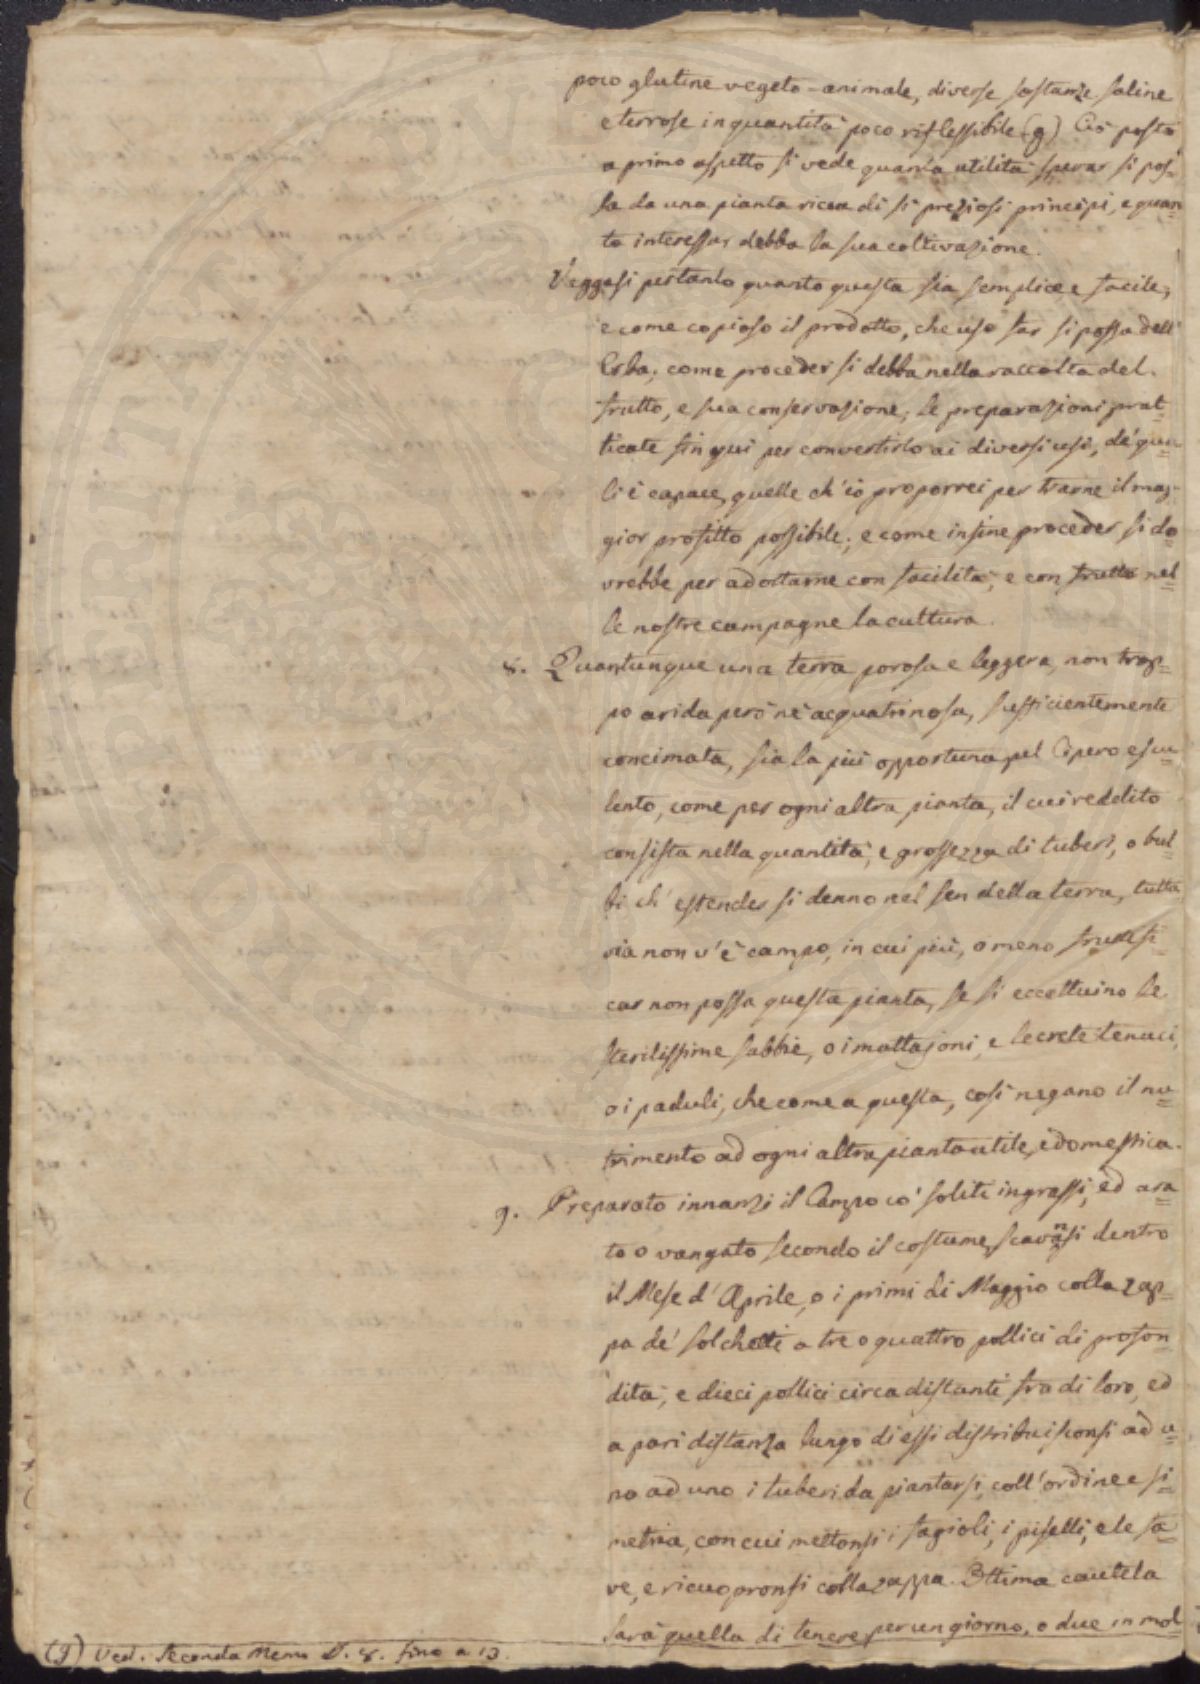 poco glutine vegeto-animale, diverse sostanze saline
e terrose in quantità poco riflessibile (g) Ciò posto
a primo aspetto si vede quanta utilità sperar si pos-
sa da una pianta ricca di sì preziosi principj, e quan=
to interessar debba la sua coltivazione.
Veggasi pertanto quanto questa sia semplice, e facile,
e come copioso il prodotto, che uso far si possa dell'
Erba, come proceder si debba nella raccolta del
frutto, e sua conservazione, le preparazioni prat=
ticate fin qui per convertirlo ai diversi usi, de' qua=
li è capace, quelle ch'io proporrei per trarne il mag-
gior profitto possibile; e come infine proceder si do=
vrebbe per adottarne con facilità, e con frutto nel=
le nostre campagne la cultura.
8. Quantunque una terra porosa e leggera, non trop=
po arida però nè acquatrinosa, sufficientemente
concimata, sia la più opportuna pel Cipero escu=
lento, come per ogni altra pianta, il cui reddito
consista nella quantità, e grossezza di tuberi, o bul=
bi ch' estender si denno nel sen della terra, tutta
via non v'è campo, in cui più, o meno fruttifi=
car non possa questa pianta, se si eccettuino le
sterilissime sabbie, o i mattajoni, e le crete tenaci,
o i paduli, che come a questa, così negano il nu=
trimento ad ogni altra pianta utile, e domestica.
9. Preparato innanzi il Campo co' soliti ingrassi, ed ara
to o vangato secondo il costume, scavansi dentro
il Mese d'Aprile, o i primi di Maggio colla zap=
pa de' solchetti a tre o quattro pollici di profon=
dità, e dieci pollici circa distanti fra di loro, ed
a pari distanza lungo di essi distribuisconsi ad u=
no ad uno i tuberi da piantarsi, coll'ordine e si=
metria, con cui mettonsi i fagioli, i piselli, e le fa=
ve, e ricuopronsi colla zappa. Ottima cautela
sarà quella di tenere per un giorno, o due in mol
(g) Ved. Seconda Mem. §. 8. fino a 13.